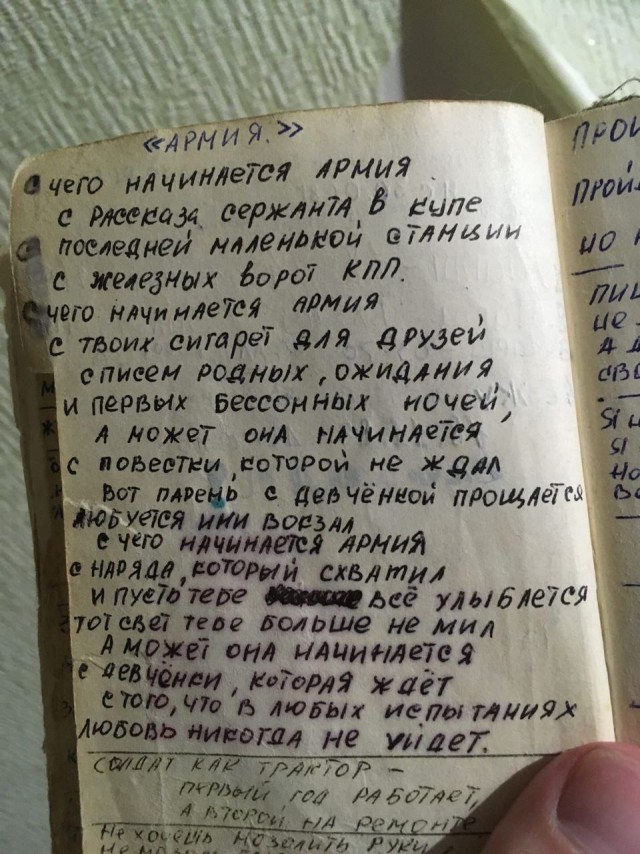 «АРМИЯ.»
С чего НАЧИНАЕТСЯ АРМИЯ
С РАССКАЗА СЕРЖАНТА В КУПЕ
ПОСЛЕДНЕЙ МАЛЕНЬКОЙ СТАНЦИИ
С ЖЕЛЕЗНЫХ ВОРОТ КПП.
С чего НАЧИНАЕТСЯ АРМИЯ
С ТВОИХ СИГАРЕТ ДЛЯ ДРУЗЕЙ
С ПИСЕМ РОДНЫХ, ОЖИДАНИЯ
И ПЕРВЫХ БЕССОННЫХ НОЧЕЙ,
А МОЖЕТ ОНА НАЧИНАЕТСЯ
С ПОВЕСТКИ, КОТОРОЙ НЕ ЖДАЛ
ВОТ ПАРЕНЬ С ДЕВЧЁНКОЙ ПРОЩАЕТСЯ
ЛЮБУЕТСЯ ИМИ ВОКЗАЛ
С ЧЕГО НАЧИНАЕТСЯ АРМИЯ
С НАРЯДА, КОТОРЫЙ СХВАТИЛ
И ПУСТЬ ТЕБЕ ВСЁ УЛЫБАЕТСЯ
ЭТОТ СВЕТ ТЕБЕ БОЛЬШЕ НЕ МИЛ
А МОЖЕТ ОНА НАЧИНАЕТСЯ
С ДЕВЧЁНКИ, КОТОРАЯ ЖДЁТ
С ТОГО, ЧТО В ЛЮБЫХ ИСПЫТАНИЯХ
ЛЮБОВЬ НИКОГДА НЕ УЙДЕТ.
СОЛДАТ КАК ТРАКТОР –
ПЕРВЫЙ ГОД РАБОТАЕТ,
А ВТОРОЙ НА РЕМОНТЕ
НЕ ХОЧЕШЬ МОЗОЛИТЬ РУКИ
НО
НЕ
А
SI